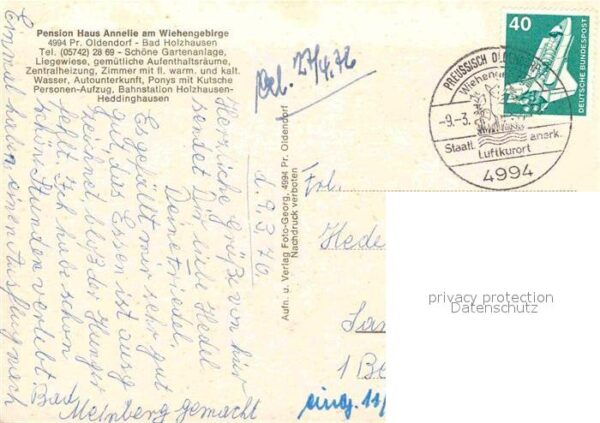 Pension Haus Annelie am Wiehengebirge
4994 Pr. Oldendorf - Bad Holzhausen
Tel. (05742) 28 69 - Schöne Gartenanlage,
Liegewiese, gemütliche Aufenthaltsräume,
Zentralheizung, Zimmer mit fl. warm. und kalt.
Wasser, Autounterkunft, Ponys mit Kutsche
Personen-Aufzug, Bahnstation Holzhausen-
Heddinghausen
d. 9.3.76
Herzliche Grüße von hier
sendet Dir liebe Hedel
Deine Friedel,
Es gefällt mir sehr gut
gut, das Essen ist ausg
zeichnet, bloß der Hunger
fehlt. Ich habe schon
schöne Stunden verlebt.
Einmal haben einen Ausflug nach
Bad
Meinberg gemacht
27/4.76
Aufn. u. Verlag Foto-Georg, 4994 Pr. Oldendorf
Nachdruck verboten
PREUSSISCH OLDENDORF
Wiehen
-9.-3.
Staatl. anerk.
Luftkurort
4994
40
DEUTSCHE BUNDESPOST
Frl.
Hede
1 Be
eing. 11/
privacy protection
Datenschutz